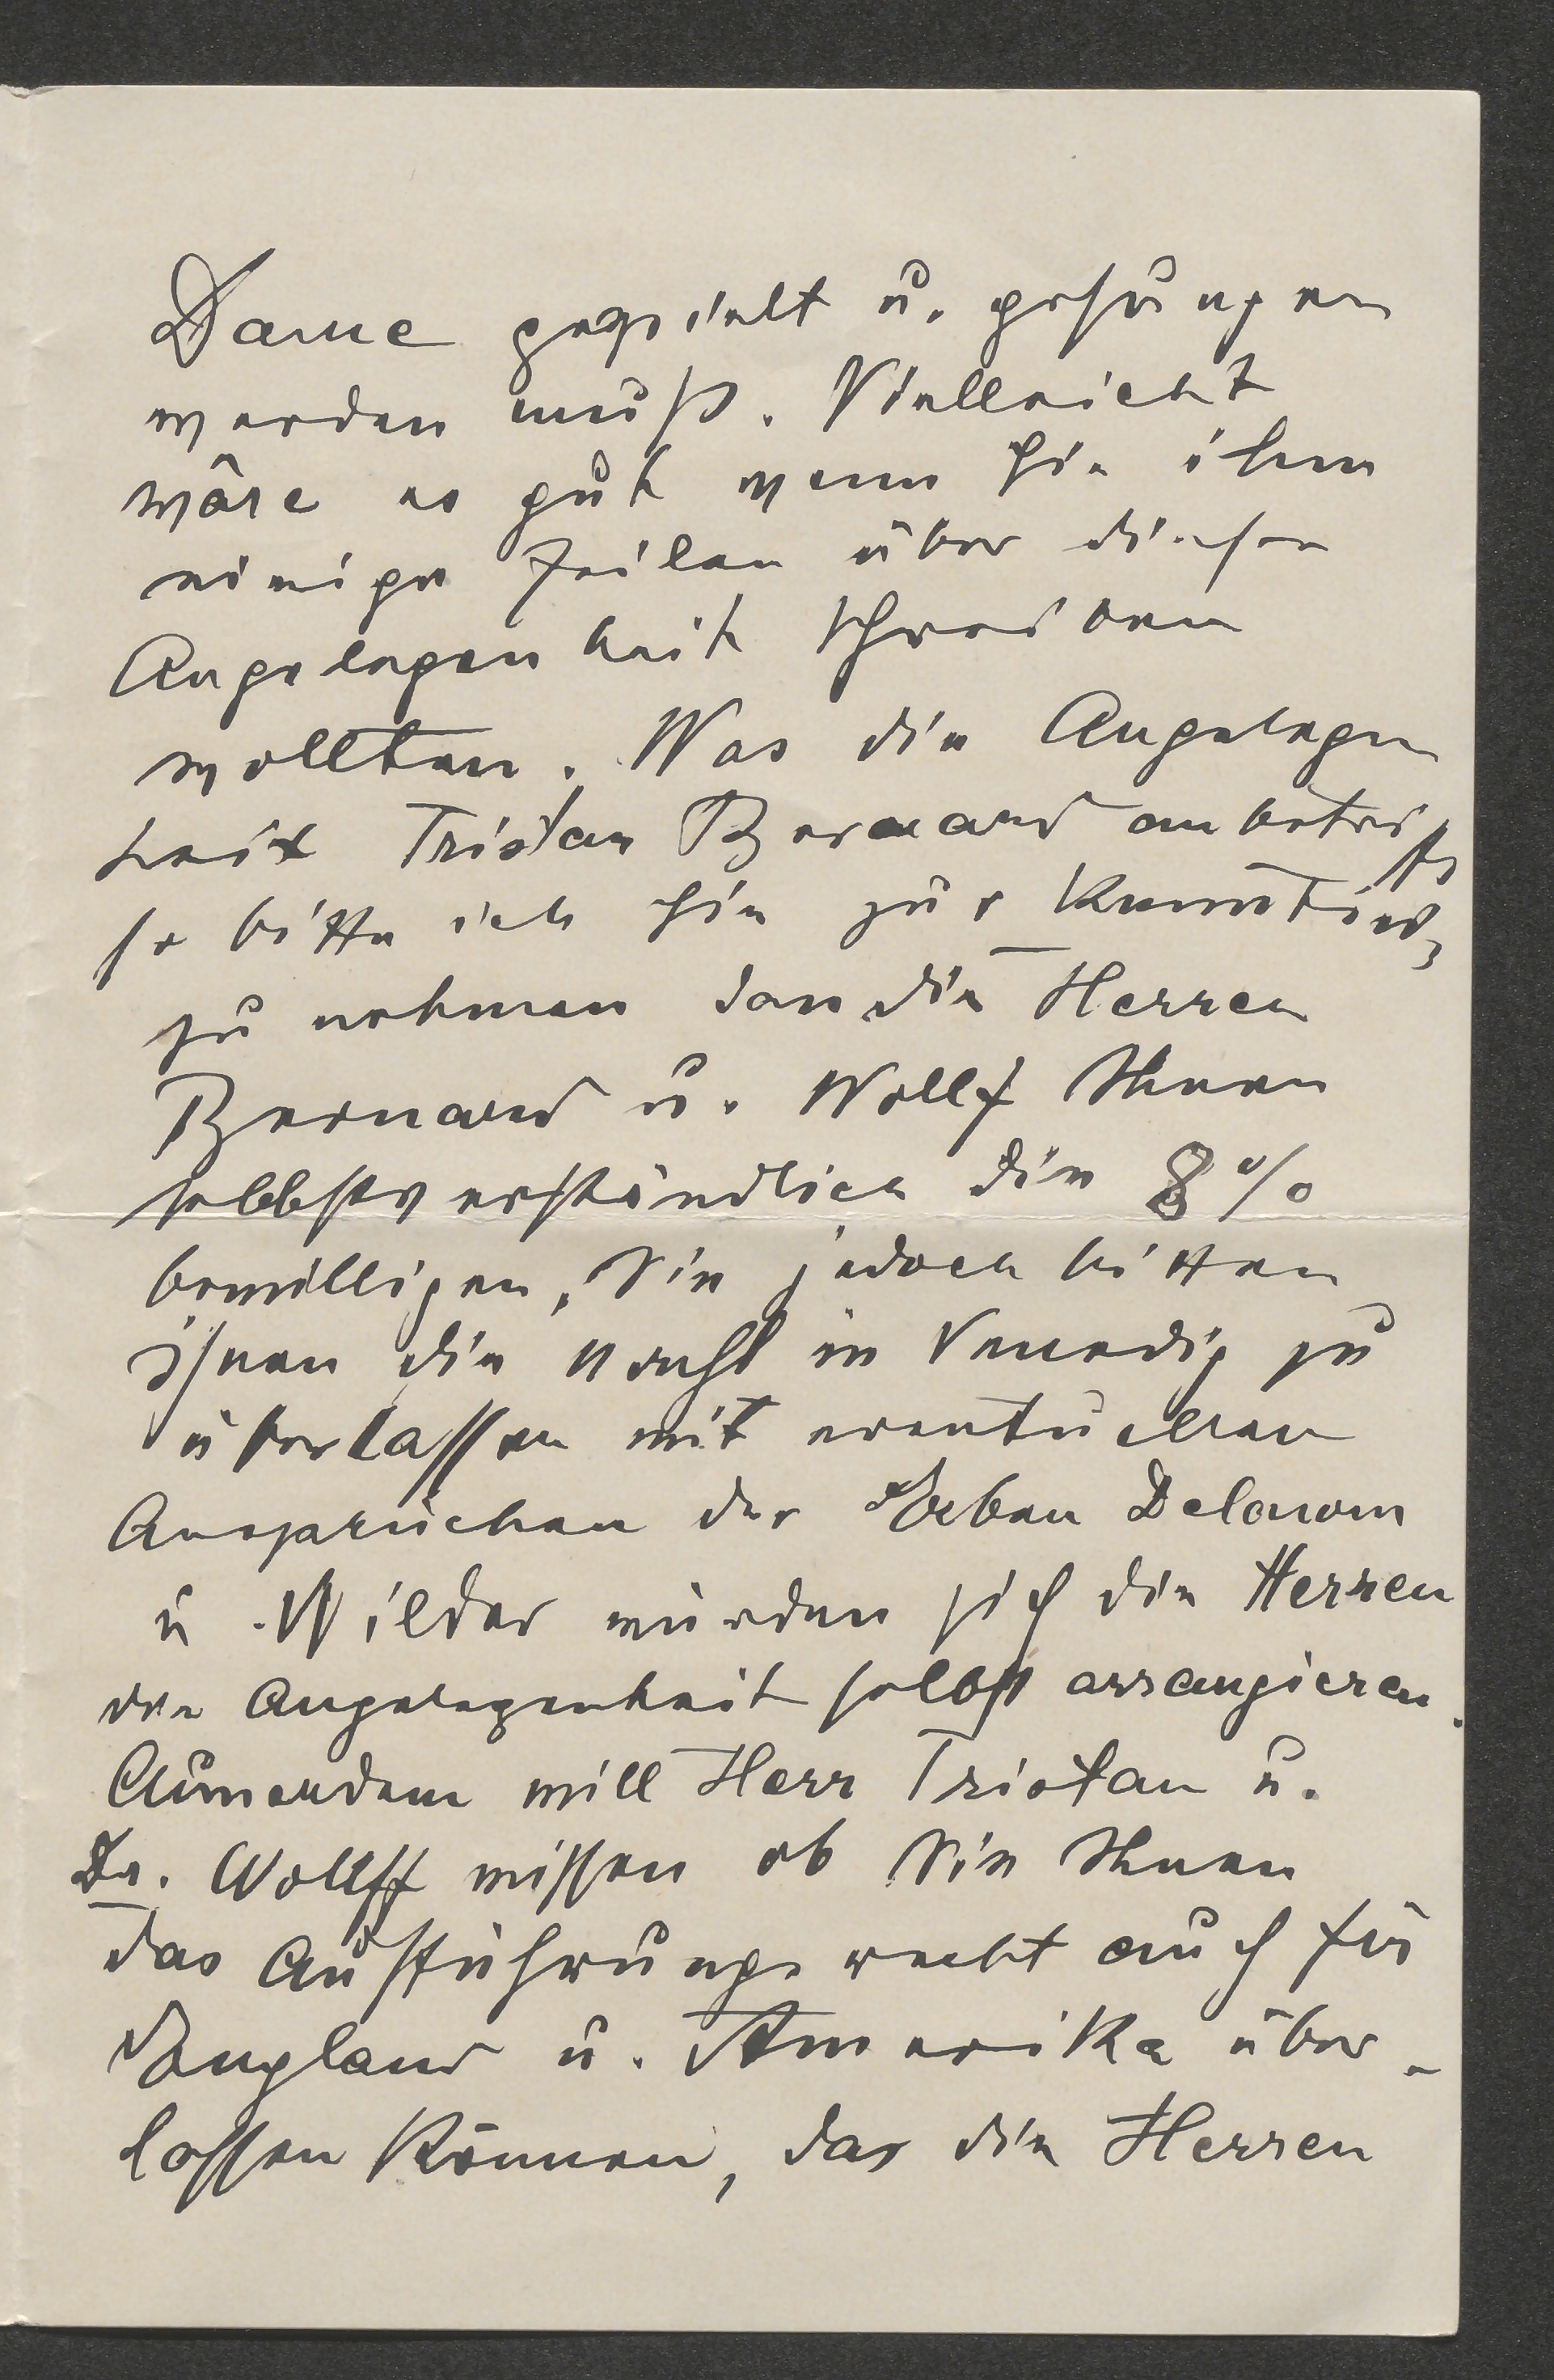 Dame gespielt u. gesungen
werden muß. Vielleicht
wäre es gut wenn Sie ihm
einige Zeilen über diese
Angelegenheit schreiben
wollten. Was die Angelegen
heit Tristan Bernard anbetrifft
so bitte ich Sie zur Kenntniß,
zu nehmen dan die Herren
Bernard u. Wollf Ihnen
selbbstverständlich die 8%
bewilligen, Sie jedoch bitten
ihnen die in Venedig zu
überlassen mit eventuellen
Ansprüchen der Erben Delacour
u. Wilder würden sich die Herren
die Angelegenheit selbst arrangieren.
Ausserdem will Herr Tristan u.
Dr. Wollff wissen ob Sie Ihnen
das Aufführungsrecht auch für
England u. Amerika über-
lassen können, das die Herren